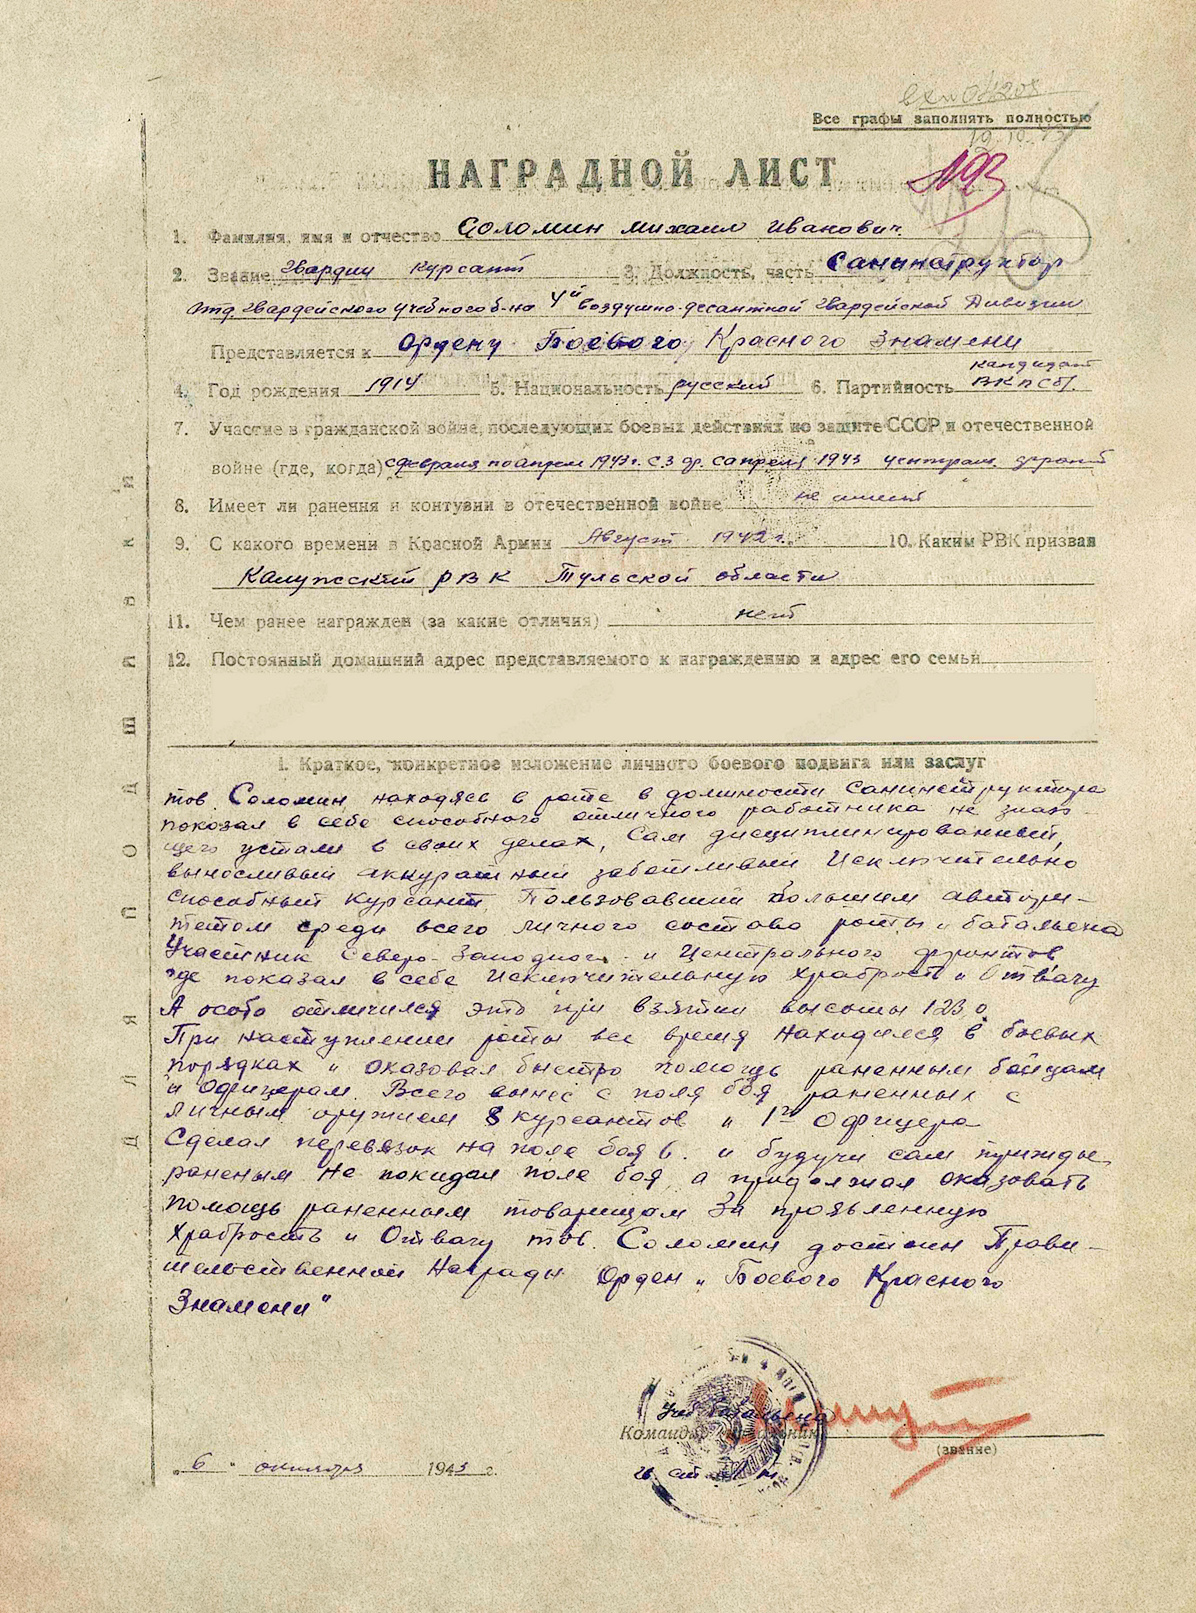 Все графы заполнять полностью
НАГРАДНОЙ ЛИСТ
1. Фамилия, имя и отчество Соломин Михаил Иванович.
2. Звание Гвардии Курсант 3. Должность, часть Санинструктор
отд. гвардейского учебного б-на 4й воздушно-десантной гвардейской Дивизии
Представляется к Ордену Боевого Красного Знамени
кандидат
4. Год рождения 1914 5. Национальность русский 6. Партийность ВКП(б).
7. Участие в гражданской войне, последующих боевых действиях по защите СССР и отечественной
войне (где, когда) с февраля по апрель 1943 г. С.З. фр. с апреля 1943 централ. фронт
8. Имеет ли ранения и контузии в отечественной войне не имеет
9. С какого времени в Красной Армии Август 1942 г. 10. Каким РВК призван
Калужский РВК Тульской области
11. Чем ранее награжден (за какие отличия) нет
12. Постоянный домашний адрес представляемого к награждению и адрес его семьи
1. Краткое, конкретное изложение личного боевого подвига или заслуг
тов. Соломин находясь в роте в должности Санинструктора
показал в себе способного отличного работника не знаю-
щего устали в своих делах, Сам дисциплинированный,
выносливый аккуратный заботливый Исключительно
способный Курсант. Пользовавший большим автори-
тетом среди всего личного состава роты и батальена
Участник Северо-Западного и Центрального фронтов
где показал в себе Исключительную храбрость и Отвагу
А особо отличился это при взятии высоты 123.0.
При наступлении роты все время находился в боевых
порядках и оказовал быстро помощь раненным бойцам
и офицерам. Всего вынес с поля боя раненных с
личным оружием 8 курсантов и 1го Офицера
Сделал перевязок на поле боя 6. и будучи сам трижды
раненым не покидал поле боя, а продолжал оказовать
помощь раненным товарищам За проявленную
храбрость и Отвагу тов. Соломин достоин Прави-
тельственной Награды Орден „Боевого Красного
Знамени"
Уч. батальена
Командир
(звание)
„6" октября 1943 г.
ДЛЯ ПОДШИВКИ
193